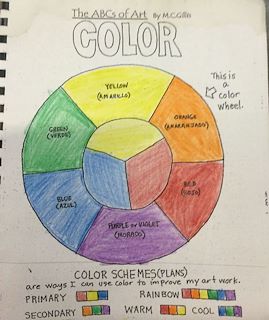 The ABCs of Art By M.C.Gillis
COLOR
This is
a color
wheel.
YELLOW
(AMARILLO)
ORANGE
(ANARANJADO)
GREEN
(VERDE)
RED
(ROJO)
BLUE
(AZUL)
PURPLE or VIOLET
(MORADO)
COLOR SCHEMES(PLANS)
are ways I can use color to improve my art work.
PRIMARY RAINBOW
SECONDARY WARM COOL